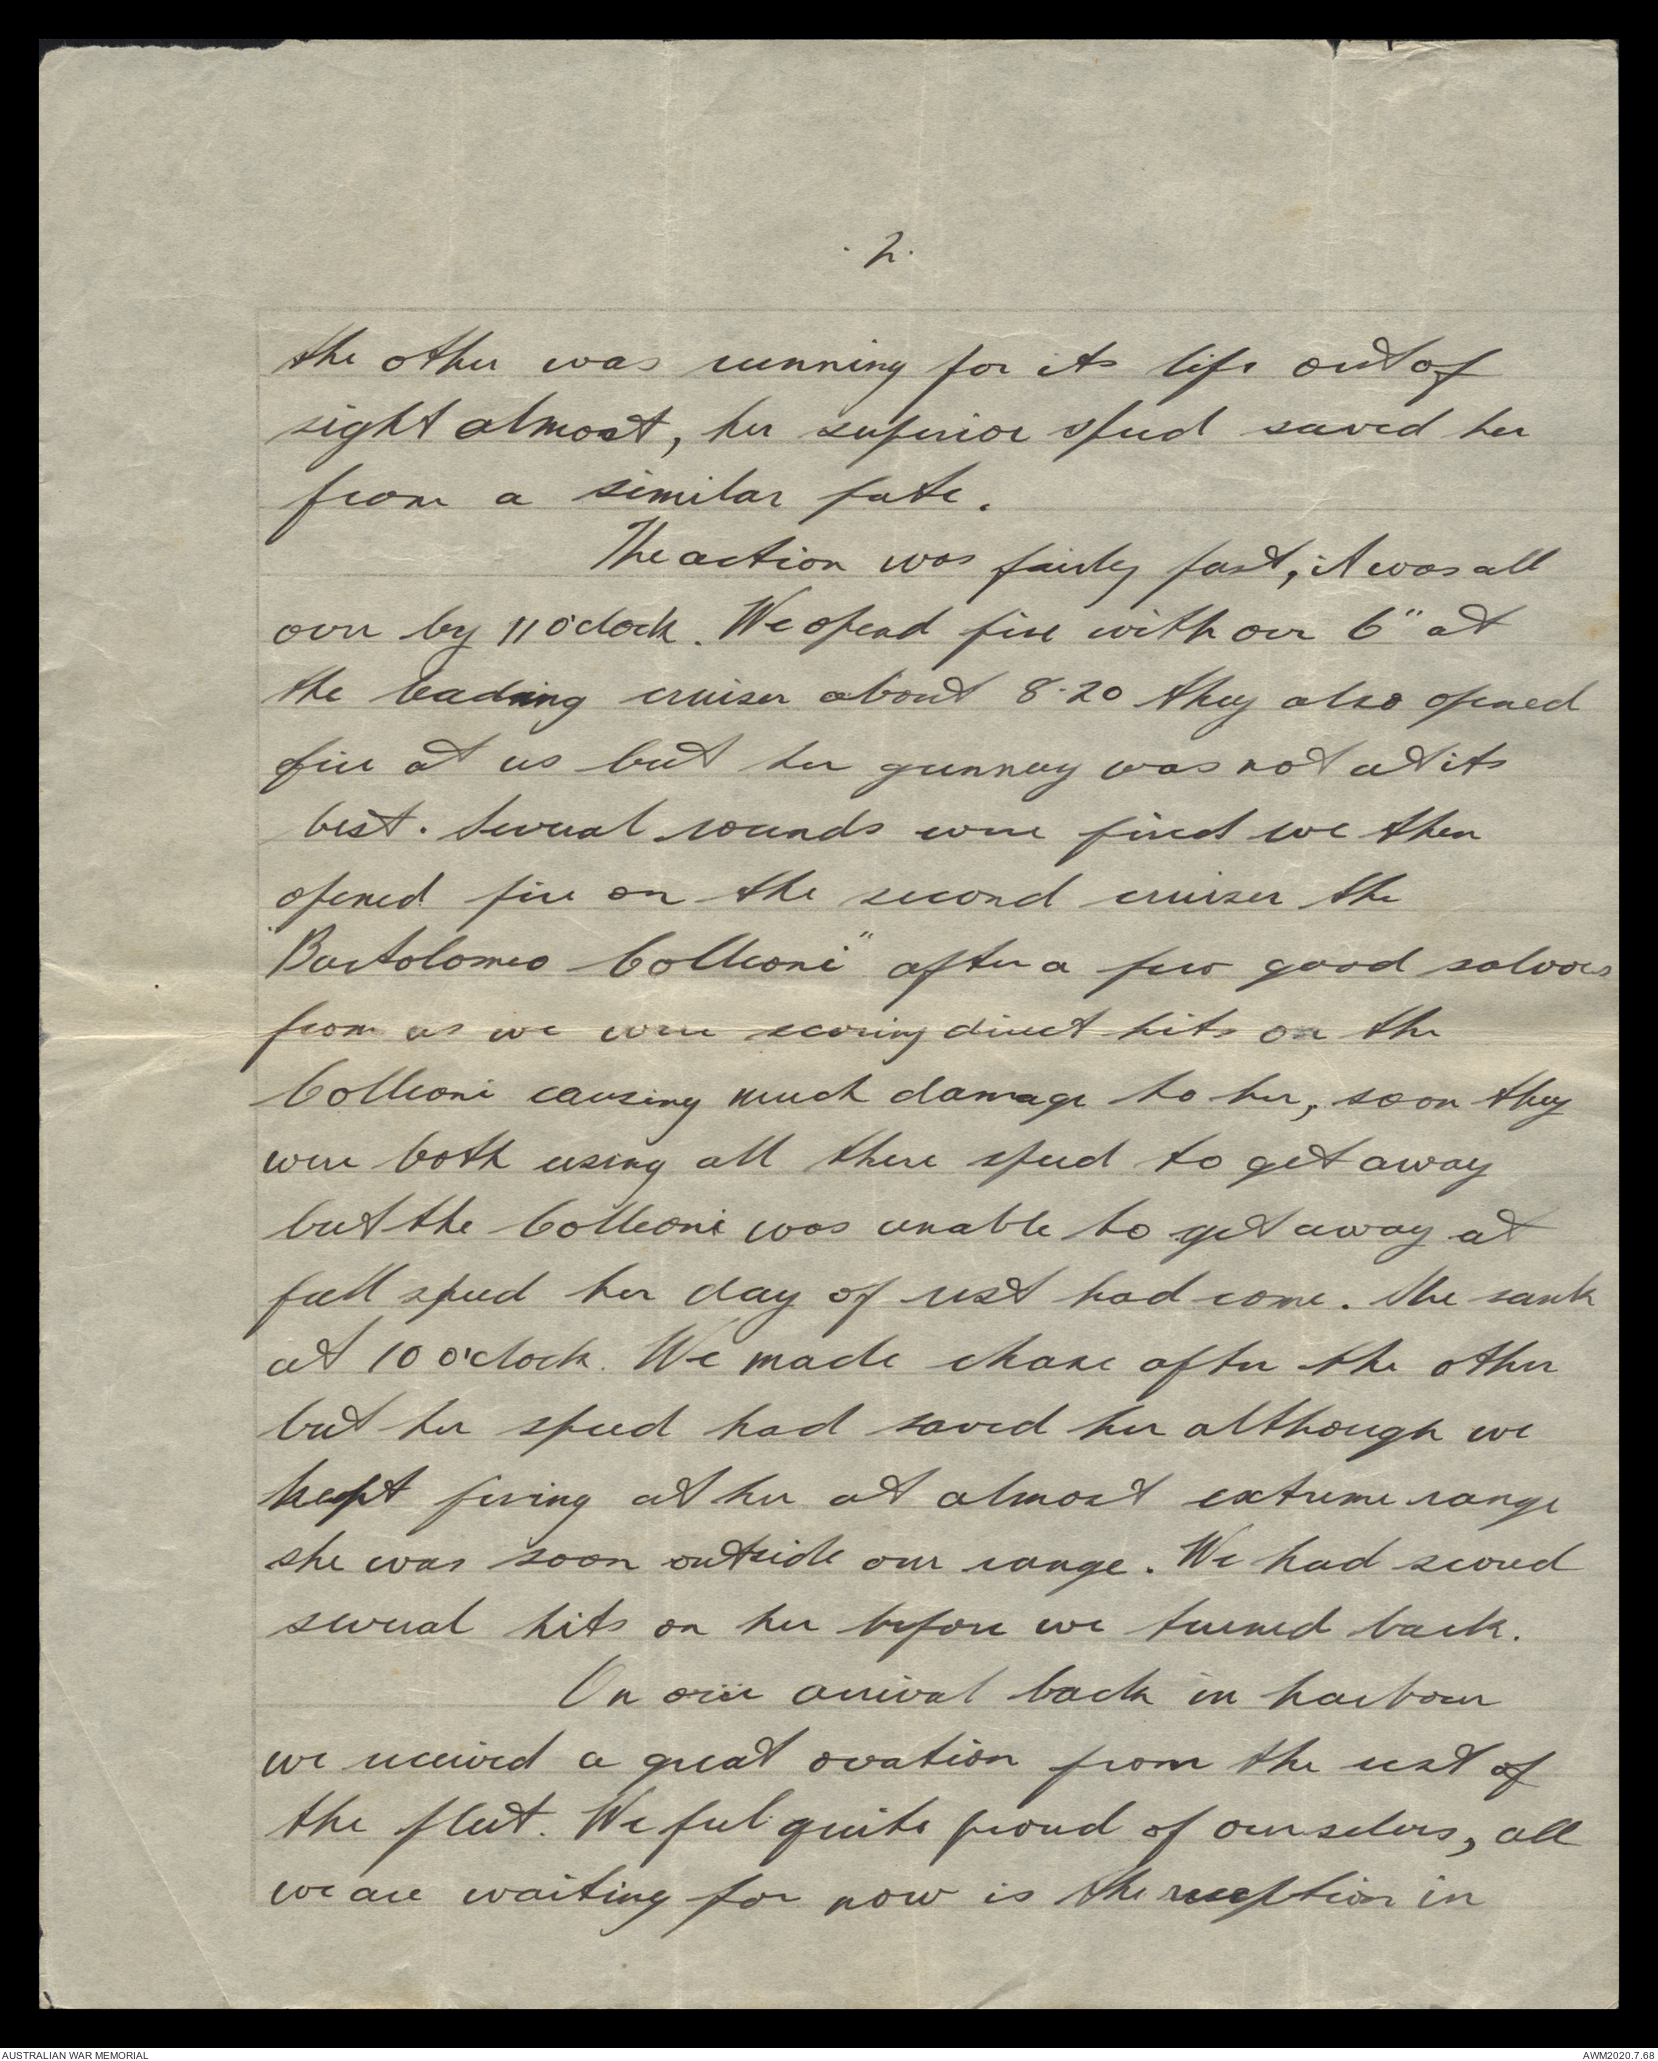 . 2.
the other was running for its life out of
sight almost, her superior speed saved her
from a similar fate.
The action was fairly fast, it was all
over by 11 o'clock. We opend fire with our 6" at
the leading cruiser about 8.20 they also opened
fire at us but her gunnery was not at its
best. Several rounds were fired we then
opened fire on the second cruiser the
"Bartolomeo Colleoni" after a few good salvoes
from us we were scoring direct hits on the
Colleoni causing much damage to her, soon they
were both using all there speed to get away
but the Colleoni was unable to get away at
full speed her day of rest had come. She sank
at 10 o'clock. We made chase after the other
but her speed had saved her although we
kept firing at her at almost extreme range
she was soon outside our range. We had scored
several hits on her before we turned back.
On our arrival back in harbour
we received a great ovation from the rest of
the fleet. We feel quite proud of ourselves, all
we are waiting for now is the reception in
AUSTRALIAN WAR MEMORIAL
AWM2020.7.68